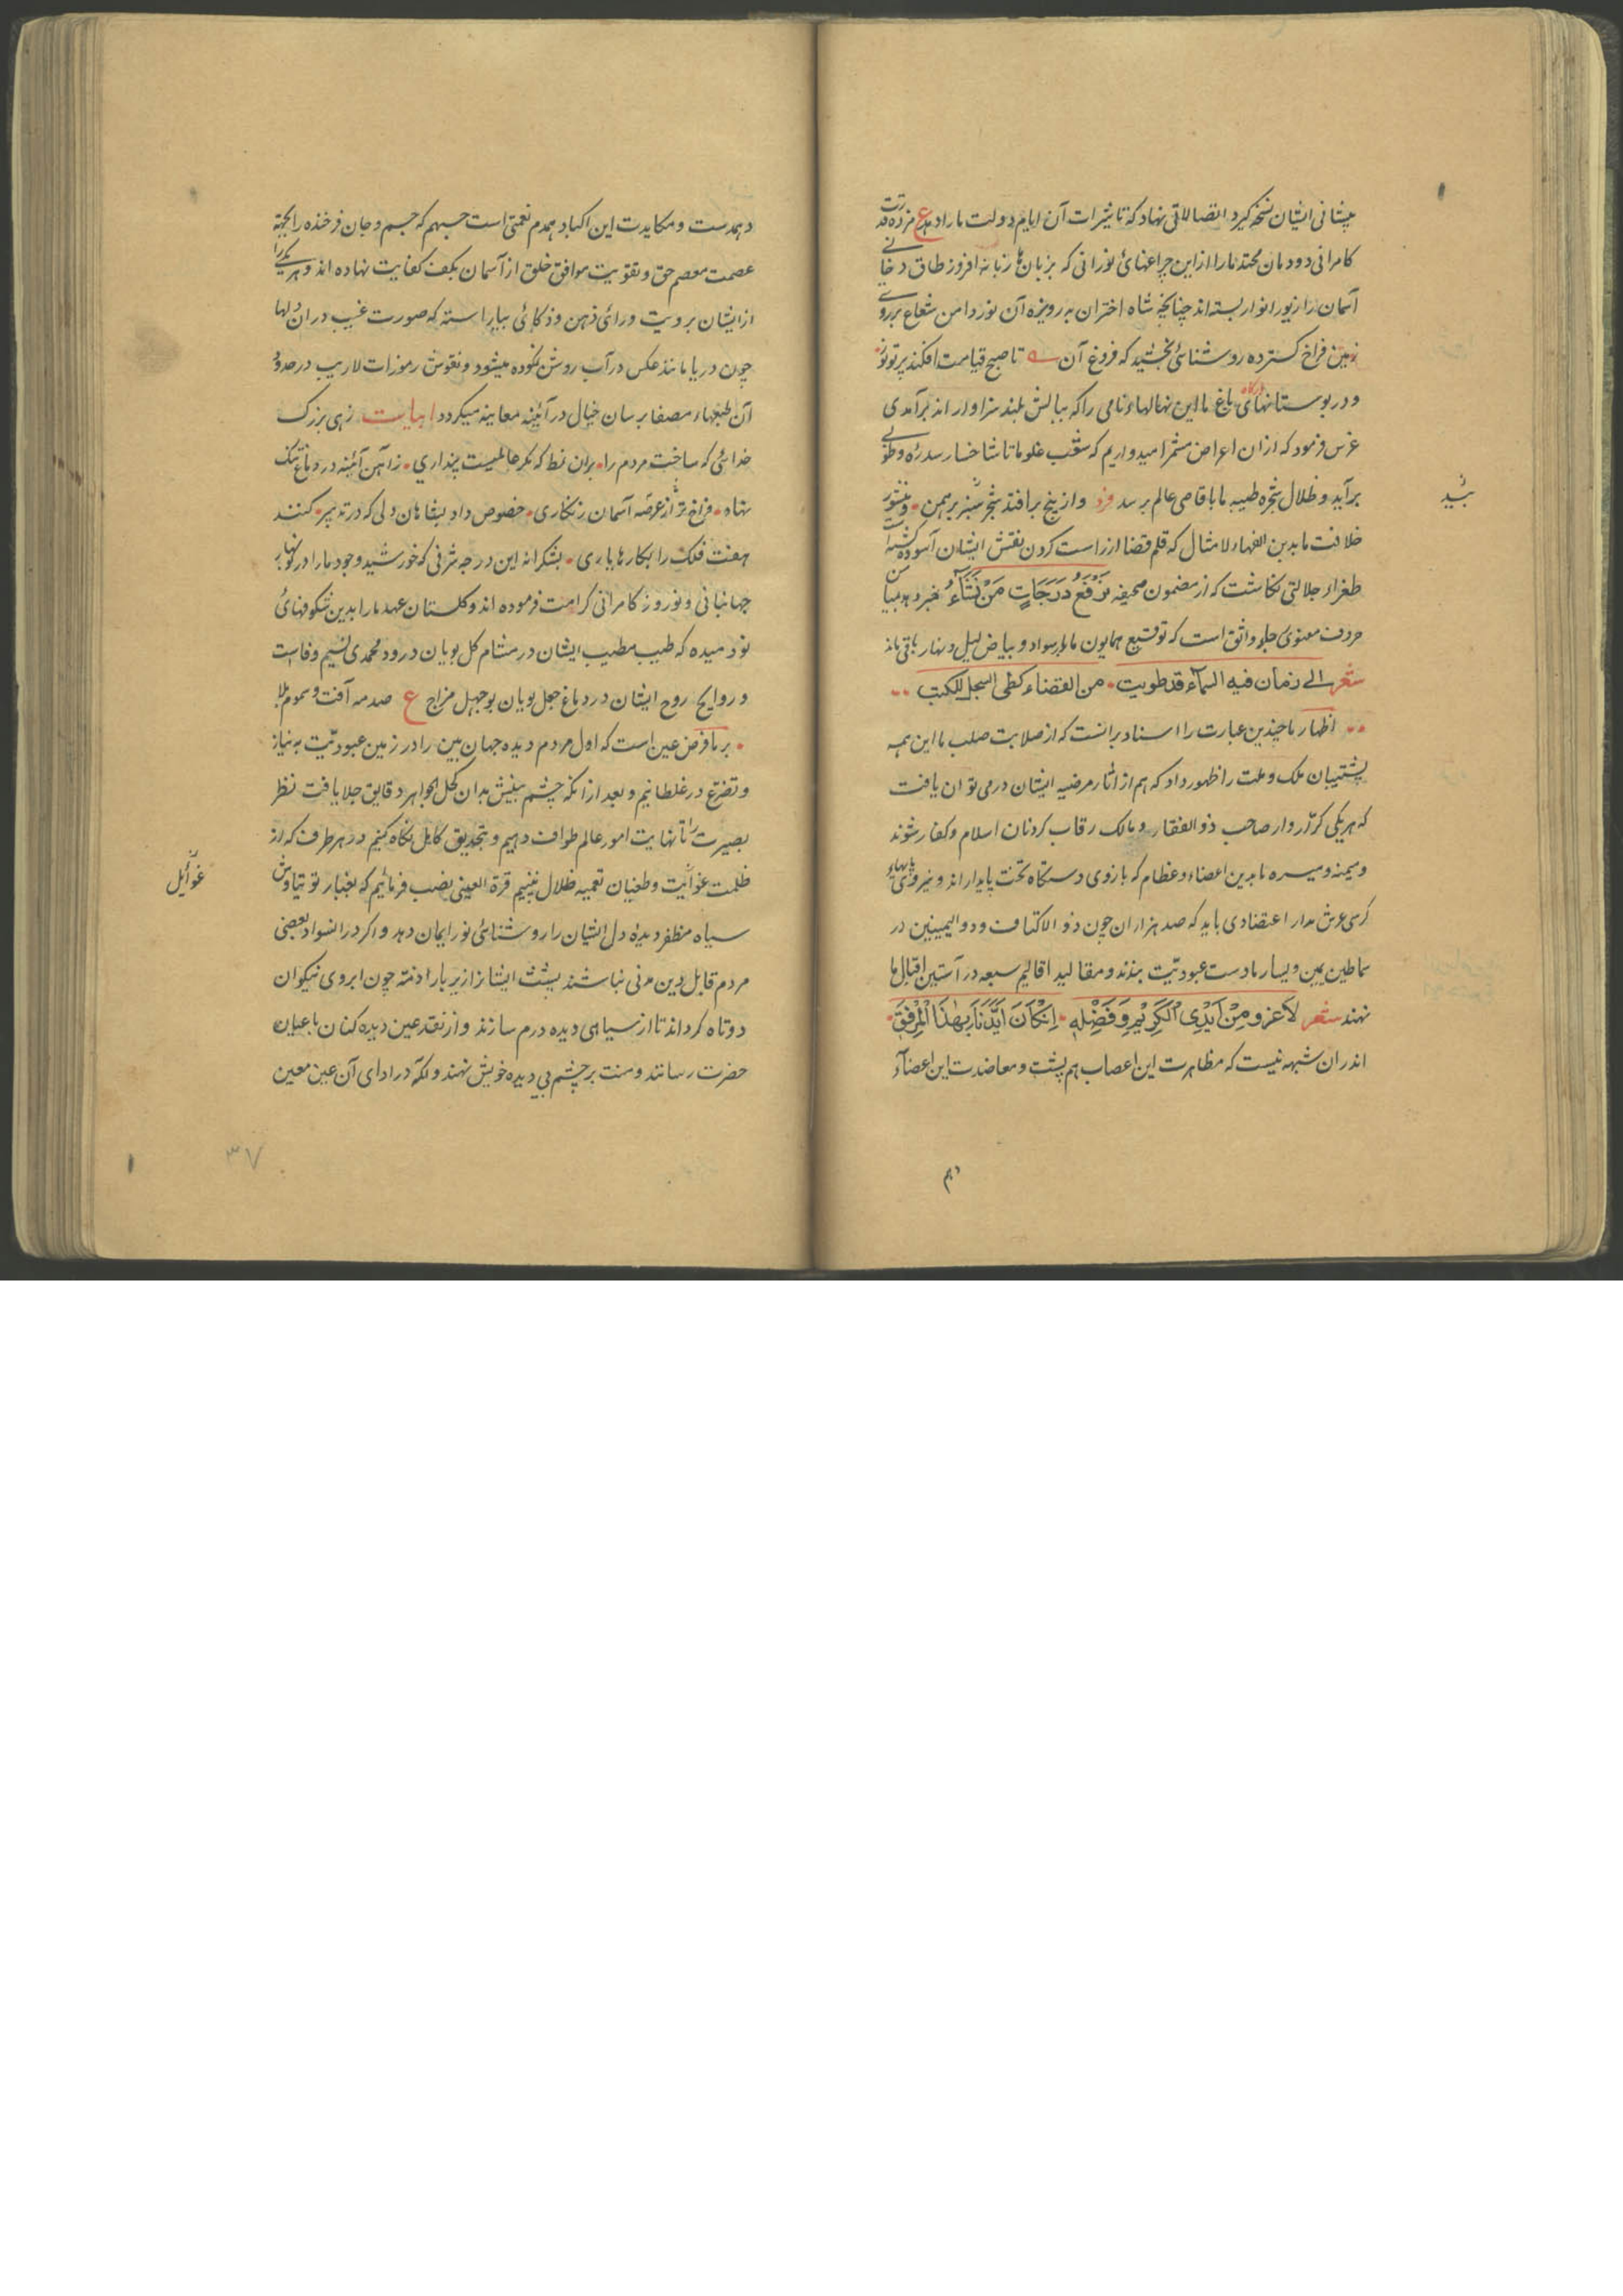 پیشانی ایشان نسخه کرد اتصالاتی نهاد که تاثیرات آن ایام دولت ما را دهد ع مژده قدرت
کامرانی دودمان محتد ما را از این چراغهائ نورانی که بزبان‌ها زبانه افروز طاق دخانی
آسمان را زیور انوار بسته‌اند چنانچه شاه اختران به رویزه آن نور دامن شعاع بر روی
زمین فراخ گسترده روشنائی بخشید که فروغ آن تا صبح قیامت افکند پرتو نور
و در بوستانهای باغ ما این نهالهاء نامی را که ببالش بلند سزاوارند برآمدی
غرس فرمود که از ان اعراض مثمر امیدواریم که شعب علو ما تا شاخسار سدره و طوبی
برآید و ظلال شجره طیبه ما باقاصی عالم برسد فرد و از بیخ برافتد شجر سبز برهمن و منشور
خلافت ما بدین الفهاء لامثال که قلم قضا از راست کردن نقش ایشان آسوده گشته است
طغراء جلالتی نگاشت که از مضمون صحیفه نَرْفَعُ دَرَجَاتٍ مَنْ نَشَآءُ خبر دهد من
حروف معنوی جلو واثق است که توقیع همایون ما بر سواد و بیاض لیل و نهار باقی ماند
شعر الی زمان فیه السمآء قد طویت من القضاء کطی السجل للکتب
اظهار ما چندین عبارت را اسناد برانست که از صلابت صلب ما این همه
پشتیبان ملک و ملت را ظهور داد که هم از آثار مرضیه ایشان در می توان یافت
که هر یکی کرّار وار صاحب ذوالفقار و مالک رقاب کردنان اسلام و کفار شوند
و میمنه و میسره ما بدین اعضاء و عظام که بازوی دستگاه تخت پایدارند و نیروی
کرسی عرش مدار اعتضادی باید که صد هزاران چون ذو الاکتاف و ذو الیمینین در
سماطین یمین و یسار ما دست عبودیّت بندند و مقالید اقالیم سبعه در آستین اقبال ما
نهند شعر لاغرو مِنْ اَیْدِی الْکَرِیْمِ وَ فَضْلِهِ اِنْ کَانَ اَیَّدَنَا بِهٰذَا الْمِرْفَقِ
اندران شبهه نیست که مظاهرت این اعصاب هم پشت و معاضدت این اعضآء
بشید
دهم
دهمدست و مکابدت این اکباد همدم نعمتی است جسیم که جسم و جان فرخنده را بجهة
عصمت معصم حق و تقویت موافق خلق از آسمان بکف کفایت نهاده اند و هر یکی را
از ایشان برویت و رائ ذهن و ذکائی بیاراسته که صورت غیب در ان دلها
چون دریا مانند عکس در آب روشن نموده میشود و نقوش رموزات لاریب در صدور
آن طبعهاء مصفا بر سان خیال در آئینه معاینه میگردد ابیات زهی بزرگ
خدائی که ساخت مردم را بران نمط که مگر عالمیست پنداری ز آهن آئینه در دماغ تنگ
نهاد فراخ تر از عرصه آسمان زنکاری خصوص داد بشاهان دلی که در تدبیر کنند
هفت فلک را بکارها یاری بشکرانه این درجه شرفی که خورشید وجود ما را در نوبهار
جهانبانی و نوروز کامرانی کرامت فرموده اند و گلستان عهد ما را بدین شکوفهائ
نو دمیده که طیب مطیب ایشان در مشام گل بویان درود محمدی نسیم وفاست
و روایح روح ایشان در دماغ جعل بویان بوجهل مزاج ع صدمه آفت و سموم بلا
بر ما فرض عین است که اول مردم دیده جهان بین را در زمین عبودیّت به نیاز
و تضرّع در غلطانیم و بعد از انکه چشم بینش بدان کحل الجواهر دقایق جلا یافت نظر
بصیرت را تا نهایت امور عالم طواف دهیم و بتحدیق کامل نگاه کنیم در هر طرف که از
ظلمت غوایت و طغیان تعمیه ظلال بینیم قرة العینی نصب فرمائیم که بغبار توتیاوش
سپاه مظفر دیدهٔ دل ایشان را روشنائی نور ایمان دهد و اگر در السواد بعضی
مردم قابل دین مرئی نباشند پشت ایشانرا زیر بار اذمه چون ابروی نیکوان
دوتاه گرداند تا از سیاهی دیده درم سازند و از نقد عین دیده کنان باعیان
حضرت رسانند و منت بر چشم بی دیده خویش نهند و الّه در ادای آن عین معین
غوائل
۳۷